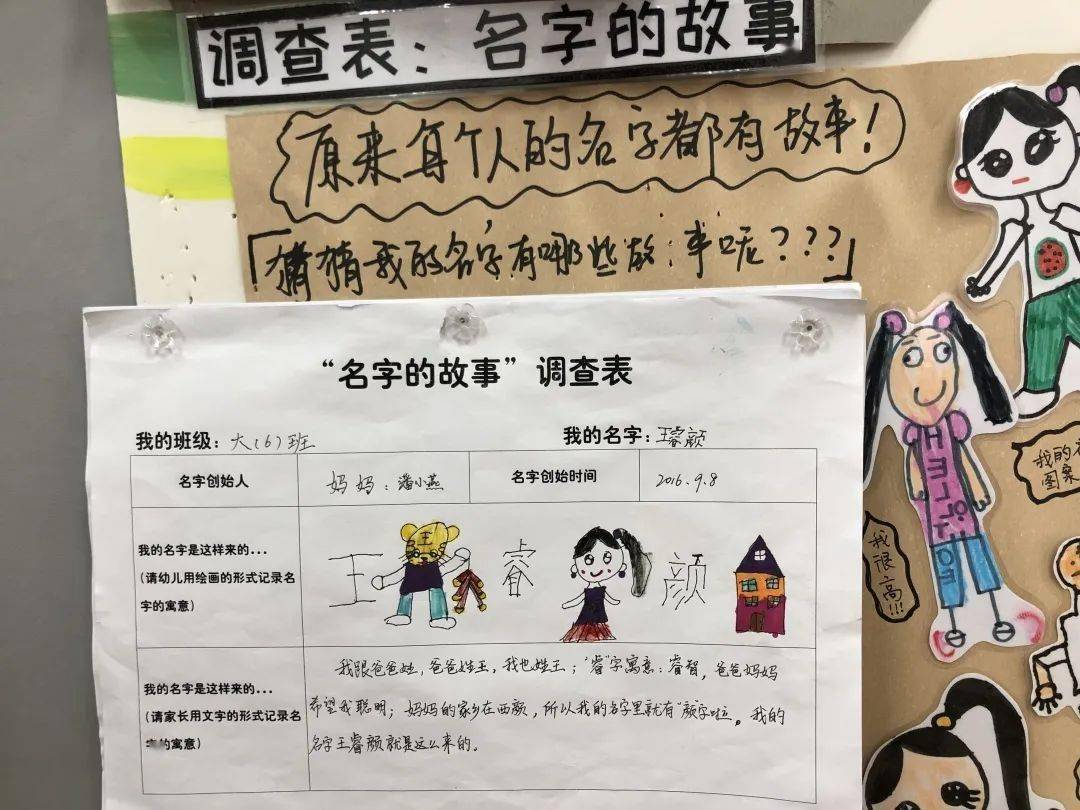 调查表：名字的故事
原来每个人的名字都有故事！
「猜猜我的名字有哪些故事呢？？？」
“名字的故事”调查表
我的班级：大（6）班 我的名字：王睿颜
名字创始人 妈妈：潘小燕 名字创始时间 2016.9.8
我的名字是这样来的...
（请幼儿用绘画的形式记录名
字的寓意）
王 睿 颜
王
我的名字是这样来的...
（请家长用文字的形式记录名
字的寓意）
我跟爸爸姓，爸爸姓王，我也姓王；“睿”字寓意：睿智，爸爸妈妈
希望我聪明；妈妈的家乡在西颜，所以我的名字里就有“颜”字啦。我的
名字王睿颜就是这么来的。
HELLO
我很高!!!
图案